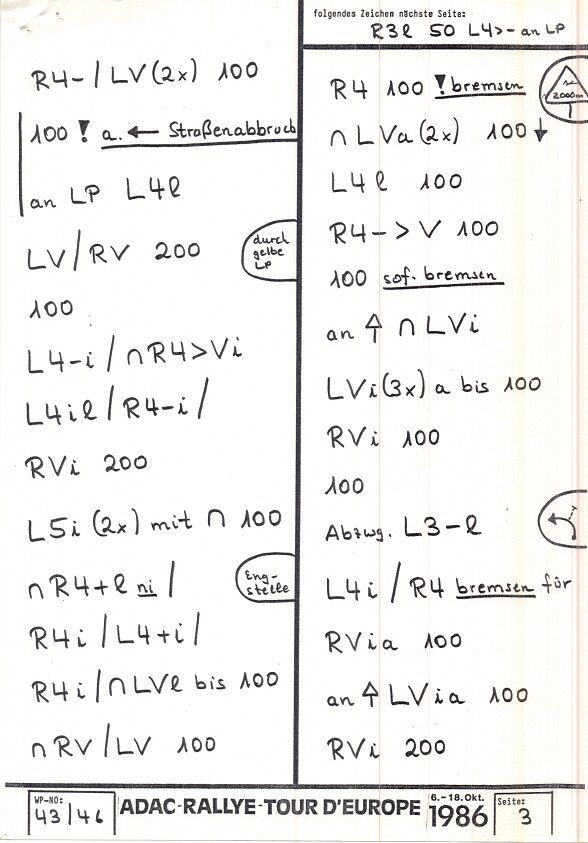 R4-/LV(2x) 100
100 ! a. ← Straßenabbruch
an LP L4l
LV/RV 200
durch
gelbe
LP
100
L4-i/∩R4>Vi
L4il/R4-i/
RVi 200
L5i (2x) mit ∩ 100
∩R4+l ni/
Eng-
stelle
R4i/L4+i/
R4i/∩LVl bis 100
∩RV/LV 100
folgendes Zeichen nächste Seite:
R3l 50 L4>- an LP
R4 100 ! bremsen
2000m
∩LVa(2x) 100↓
L4l 100
R4->V 100
100 sof. bremsen
an ⇧ ∩LVi
LVi(3x) a bis 100
RVi 100
100
Abzwg. L3-l
L4i/R4 bremsen för
RVia 100
an ⇧ LVia 100
RVi 200
WP-NO:
43/46
ADAC-RALLYE-TOUR D'EUROPE
6.-18.Okt.
1986
Seite:
3